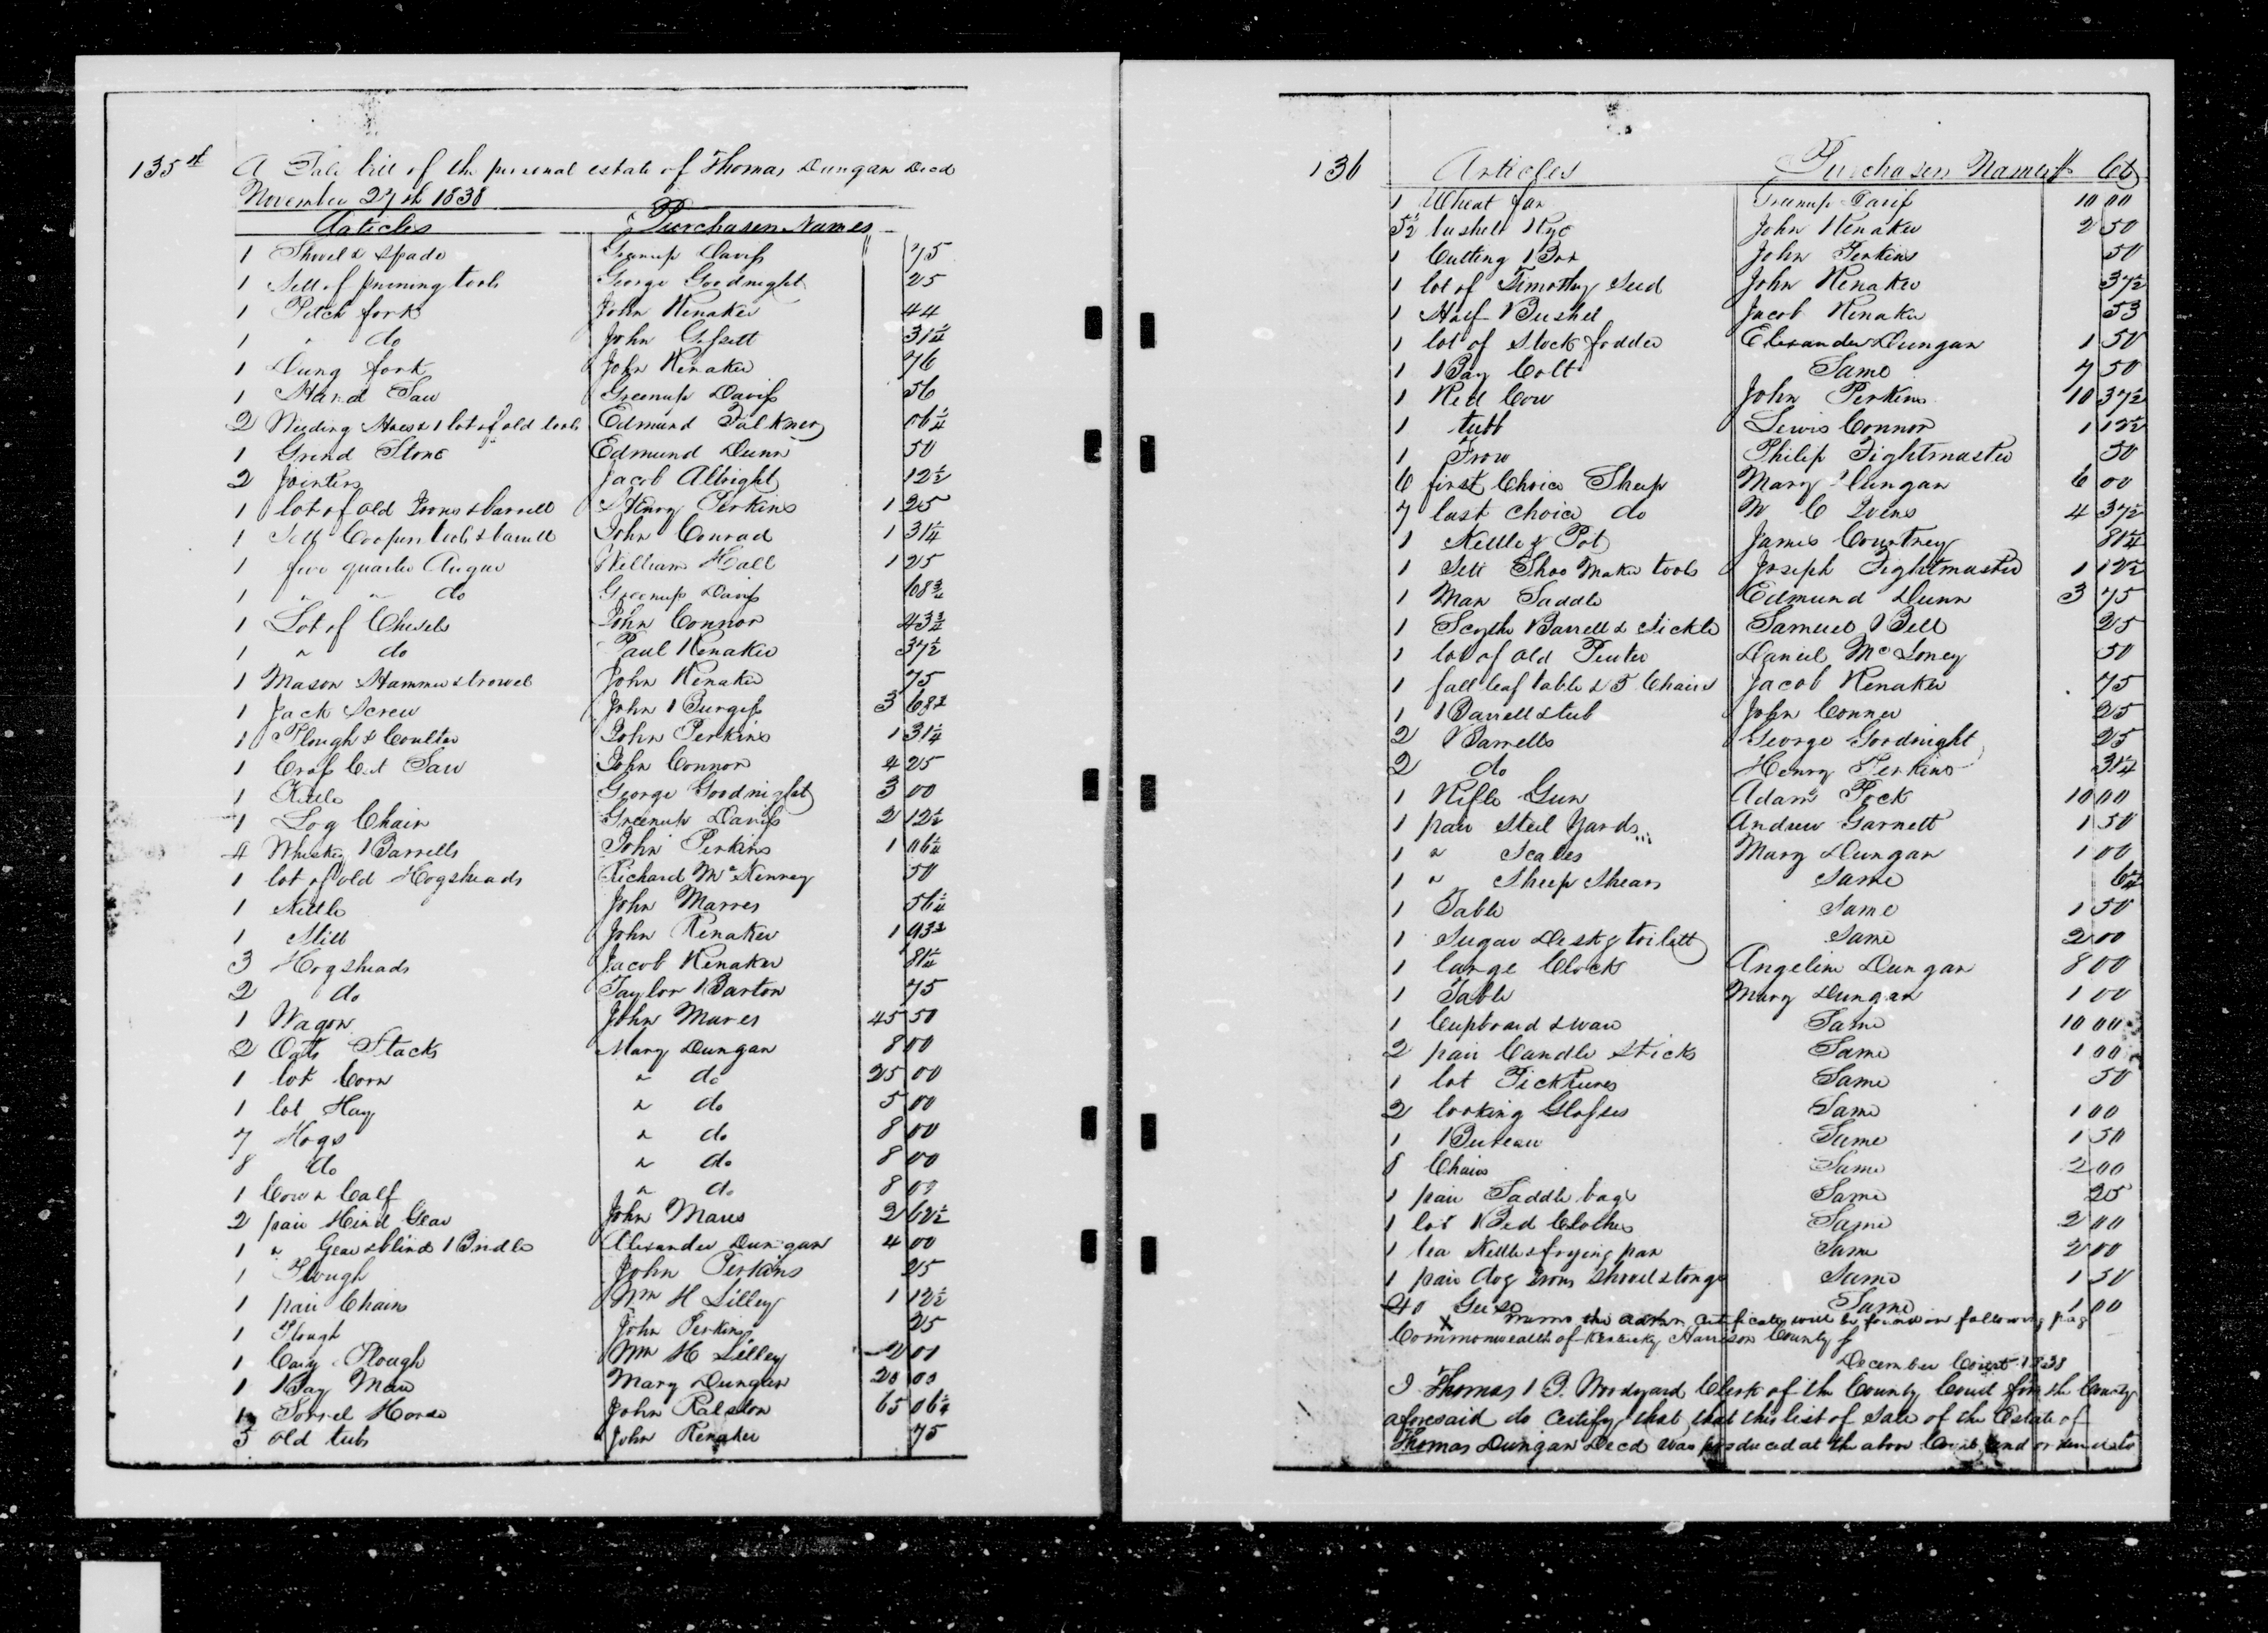 135
A Sale bill of the personal estate of Thomas Dungan Decd
November 27th 1838
Articles Purchasers Names
1 Shovel & Spade Greenup Davis 75
1 Sett of pruning tools George Goodnight 25
1 Pitch fork John Renaker 44
1 " do John 31 1/4
1 Dung fork John Renaker 76
1 Hand Saw Greenup Davis 56
2 Weeding Hoes & 1 lot of old tools Edmund Falkner 06 1/4
1 Grind Stone Edmund Dunn 50
2 Jointers Jacob Albright 12 1/2
1 lot of old Irons & barrell Henry Perkins 1 25
1 Sett Coopers tools & barrell John Conrad 1 31 1/4
1 five quarter Auger William Hall 1 25
1 " " do Greenup Davis 68 3/4
1 Lot of Chisels John Connor 43 3/4
1 " do Paul Renaker 37 1/2
1 Mason Hammer & trowel John Renaker 75
1 Jack Screw John Burgess 3 68 3/4
1 Plough & Coulter John Perkins 1 31 1/4
1 Cross Cut Saw John Connor 4 25
1 Kettle George Goodnight 3 00
1 Log Chain Greenup Davis 2 12 1/2
4 Whiskey Barrells John Perkins 1 06 1/4
1 lot of old Hogsheads Richard McKenney 50
1 Kettle John Marres 56 1/4
1 Still John Renaker 1 93 3/4
3 Hogsheads Jacob Renaker 81 1/4
2 do Taylor Barton 75
1 Wagon John Mares 45 50
2 Oats Stacks Mary Dungan 8 00
1 lot Corn " do 25 00
1 lot Hay " do 5 00
7 Hogs " do 8 00
8 do " do 8 00
1 Cow & Calf " do 8 00
2 pair Hind Gear John Mares 2 62 1/2
1 " Gear & blind Bridle Alexander Dungan 4 00
1 Plough John Perkins 25
1 pair Chains Wm H Lilley 1 12 1/2
1 Plough John Perkins 25
1 Cary Plough Wm H Lilley 2 01
1 Bay Mare Mary Dungan 20 00
1 Sorrel Horse John Ralston 65 06 1/4
5 old tubs John Renaker 75
136 Articles Purchasers Names $ Cts
1 Wheat fan Greenup Davis 10 00
5 1/2 bushels Rye John Renaker 2 50
1 Cutting Box John Perkins 50
1 lot of Timothy Seed John Renaker 37 1/2
1 Half Bushel Jacob Renaker 53
1 lot of Stock fodder Elexander Dungan 1 50
1 Bay Colt Same 7 50
1 Red Cow John Perkins 10 37 1/2
1 tubb Lewis Connor 1 12 1/2
1 Frow Philip Tightmaster 50
6 first Choice Sheep Mary Dungan 6 00
7 last choice do W C 4 37 1/2
1 Kettle & Pot James Courtney 81 1/4
1 Sett Shoe Maker tools Joseph Tightmaster 1 12 1/2
1 Man Saddle Edmund Dunn 3 75
1 Scythe Barrell & Sickle Samuel Bell 25
1 lot of old Peuter Daniel McLoney 50
1 fall leaf table & 5 Chairs Jacob Renaker 75
1 Barrell & tub John Conner 25
2 Barrells George Goodnight 25
2 do Henry Perkins 31 1/4
1 Rifle Gun Adam Pock 10 00
1 pair Steel Yards Andrew Garnett 1 50
1 " Scales Mary Dungan 1 00
1 " Sheep Shears Same 6 1/4
1 Table Same 1 50
1 Sugar Desk & toilett Same 2 00
1 large Clock Angeline Dungan 8 00
1 Table Mary Dungan 1 00
1 Cupboard & ware Same 10 00
2 pair Candle Sticks Same 1 00
1 lot Picktures Same 50
2 looking Glasses Same 1 00
1 Bureau Same 1 50
8 Chairs Same 2 00
1 pair Saddle bags Same 25
1 lot Bed Clothes Same 2 00
1 tea Kettle & frying pan Same 2 00
1 pair dog Irons Shovel & tongs Same 1 50
40 Geese Same 1 00
X memo the admr certificate will be found on following pag
Commonwealth of Kentucky Harrison County
December Court 1838
I Thomas B. Woodyard Clerk of the County Court for the County
aforesaid do Certify that that this list of Sale of the Estate of
Thomas Dungan Decd was produced at the above Court and ordered to